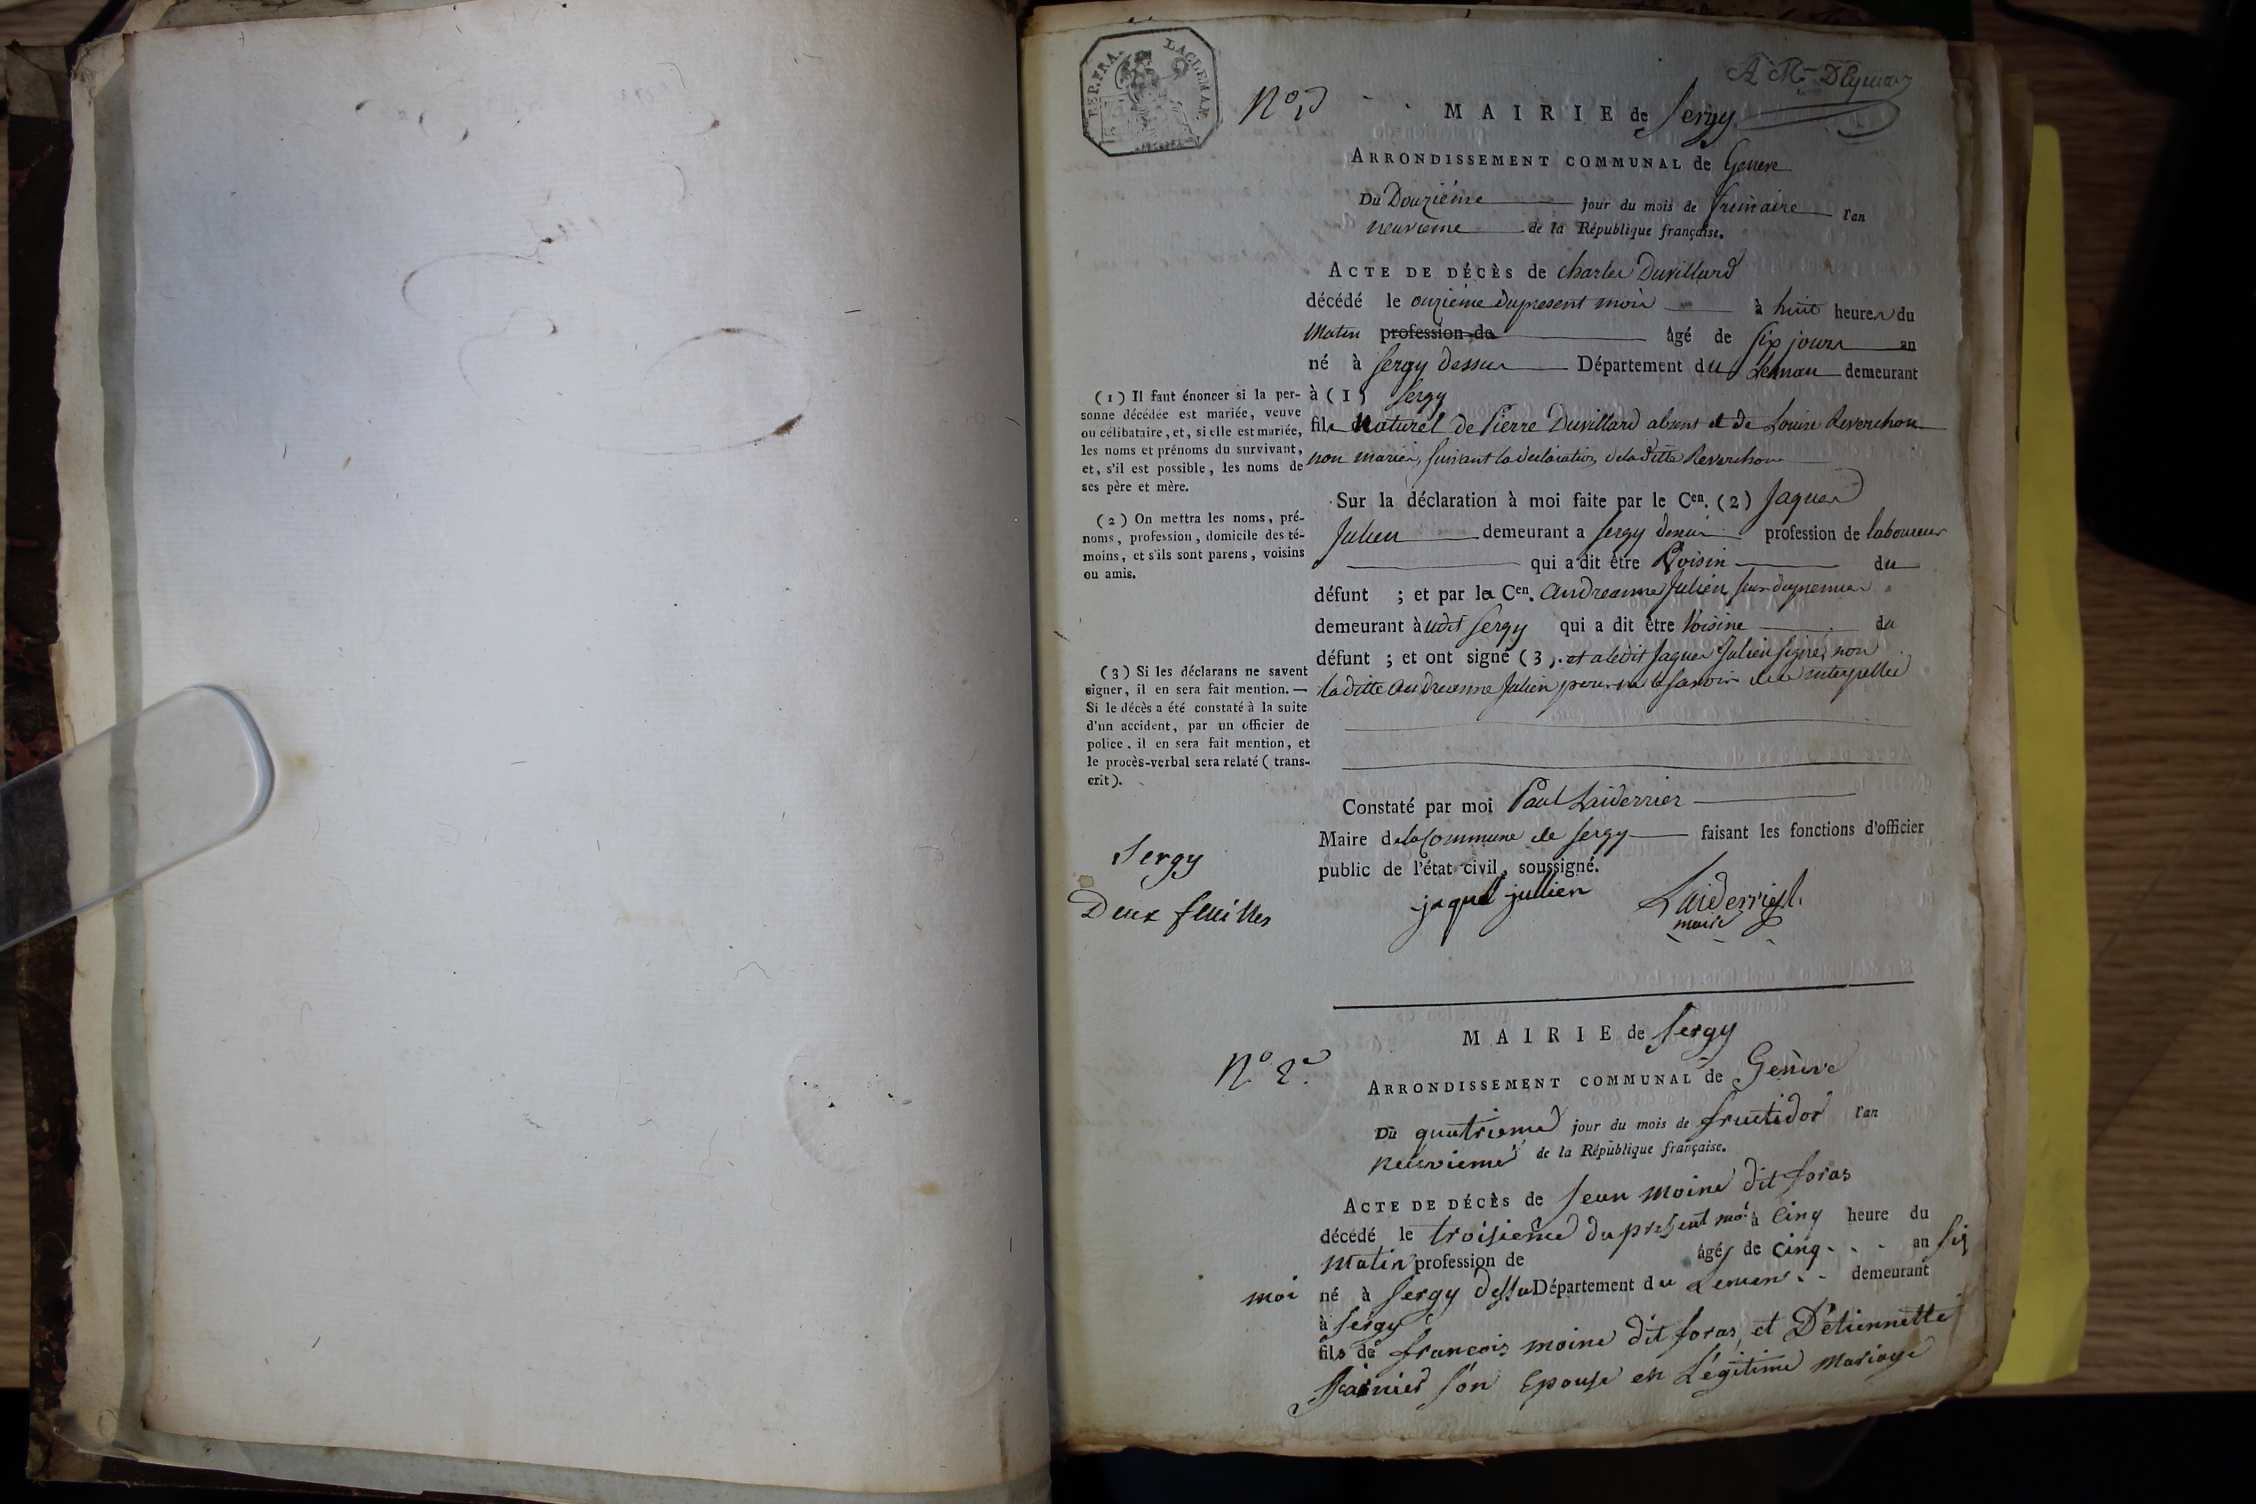 REP. FRA.
N.º
MAIRIE de Sergy
ARRONDISSEMENT COMMUNAL de Geneve
Du Douzième jour du mois de frimaire l'an
neuvieme de la République française.
ACTE DE DÉCÈS de charles Duvillard
décédé le onzième du present mois à huit heures du
matin profession de âgé de six jours an
né à Sergy dessus Département du Leman demeurant
à (1) Sergy
fils naturel de Pierre Duvillard absent et de Louise Reverchon
non mariés, suivant la declaration de laditte Reverchon
Sur la déclaration à moi faite par le Cen. (2) Jaques
Julien demeurant a Sergy dessus profession de laboureur
qui a dit être Voisin du
défunt ; et par la Cen. Andreanne Julien
demeurant à udit Sergy qui a dit être Voisine du
défunt ; et ont signé (3). et a ledit Jaques Julien signé, non
laditte Andreanne Julien pour ne le savoir de ce interpellée
Constaté par moi Paul Laiderrier
Maire de la Commune de Sergy faisant les fonctions d'officier
public de l'état civil, soussigné.
jaque jullien
maire
(1) Il faut énoncer si la per-
sonne décédée est mariée, veuve
ou célibataire, et, si elle est mariée,
les noms et prénoms du survivant,
et, s'il est possible, les noms de
ses père et mère.
(2) On mettra les noms, pré-
noms, profession, domicile des té-
moins, et s'ils sont parens, voisins
ou amis.
(3) Si les déclarans ne savent
signer, il en sera fait mention. —
Si le décès a été constaté à la suite
d'un accident, par un officier de
police, il en sera fait mention, et
le procès-verbal sera relaté ( trans-
crit ).
Sergy
Deux feuilles
MAIRIE de Sergy
N.º 2.
ARRONDISSEMENT COMMUNAL de Genève
Du quatrieme jour du mois de fructidor l'an
neuvieme de la République française.
ACTE DE DÉCÈS de Jean moine dit foras
décédé le troisieme du present moi à Cinq heure du
matin profession de âgé de cinq an six
moi né à Sergy dessu Département du Leman demeurant
à Sergy
fils de francois moine dit foras, et D'étiennette
son Epouse en Légitime mariage